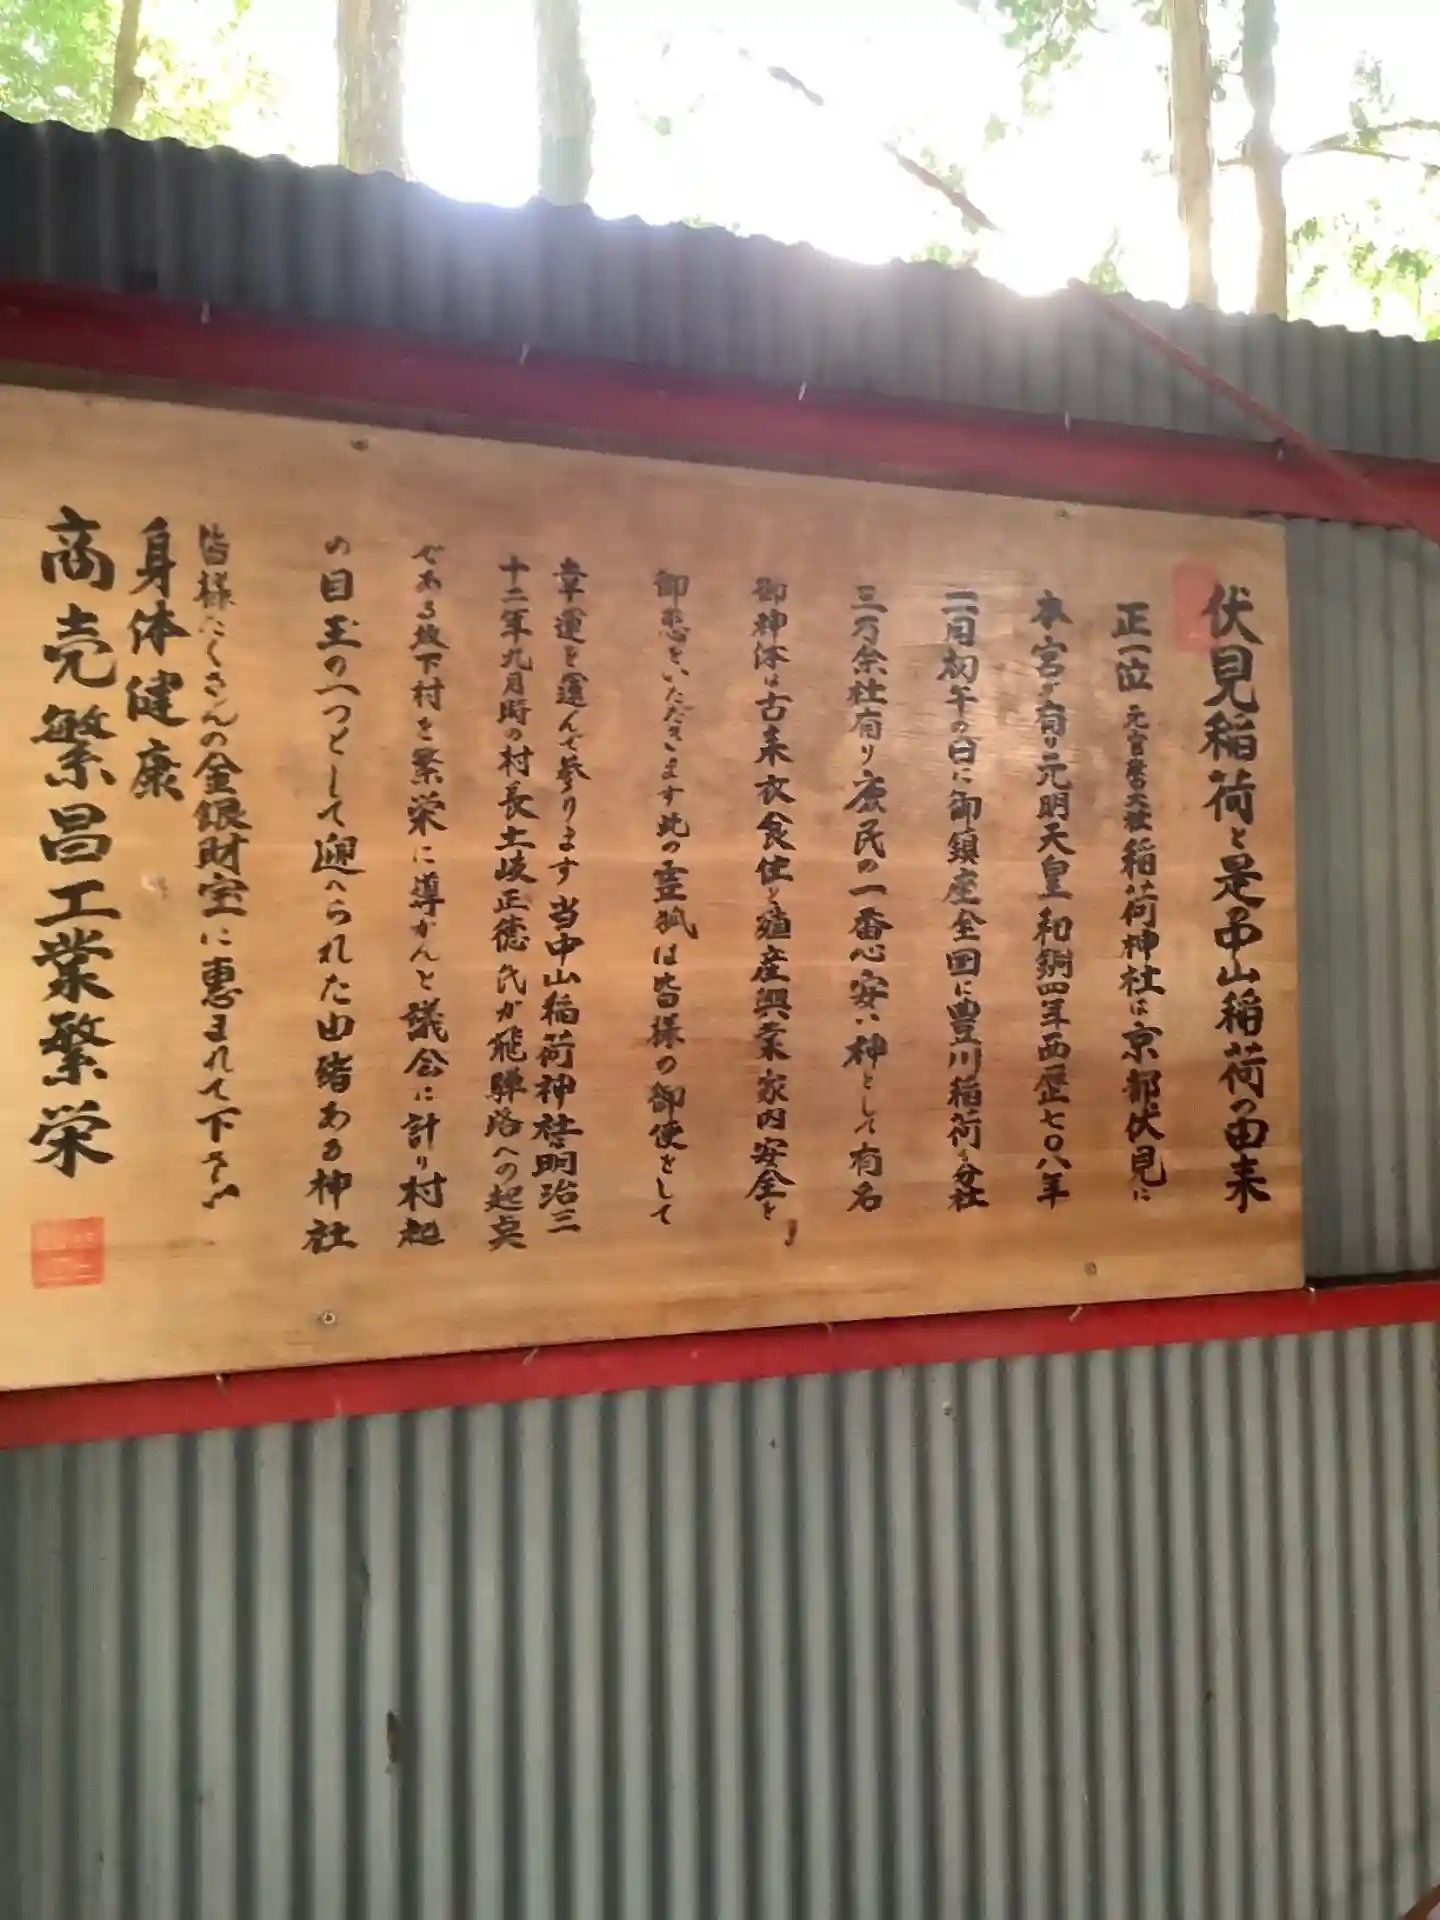 伏見稲荷と是中山稲荷の由来
正一位 元官幣大社 稲荷神社は京都伏見に
本宮が有り元明天皇和銅四年西歴七〇八年
二月初午の日に御鎮座全国に豊川稲荷も分社
三万余社有り庶民の一番心安い神として有名
御神体は古来衣食住と殖産興業家内安全と
御恵をいただきます此の霊狐は皆様の御使をして
幸運を運んで参ります当中山稲荷神社明治三
十二年九月時の村長土岐正徳氏が飛騨路への起点
である坂下村を繁栄に導かんと議会に計り村起
の目玉の一つとして迎へられた由緒ある神社
皆様たくさんの金銀財宝に恵まれて下さい
身体健康
商売繁昌工業繁栄